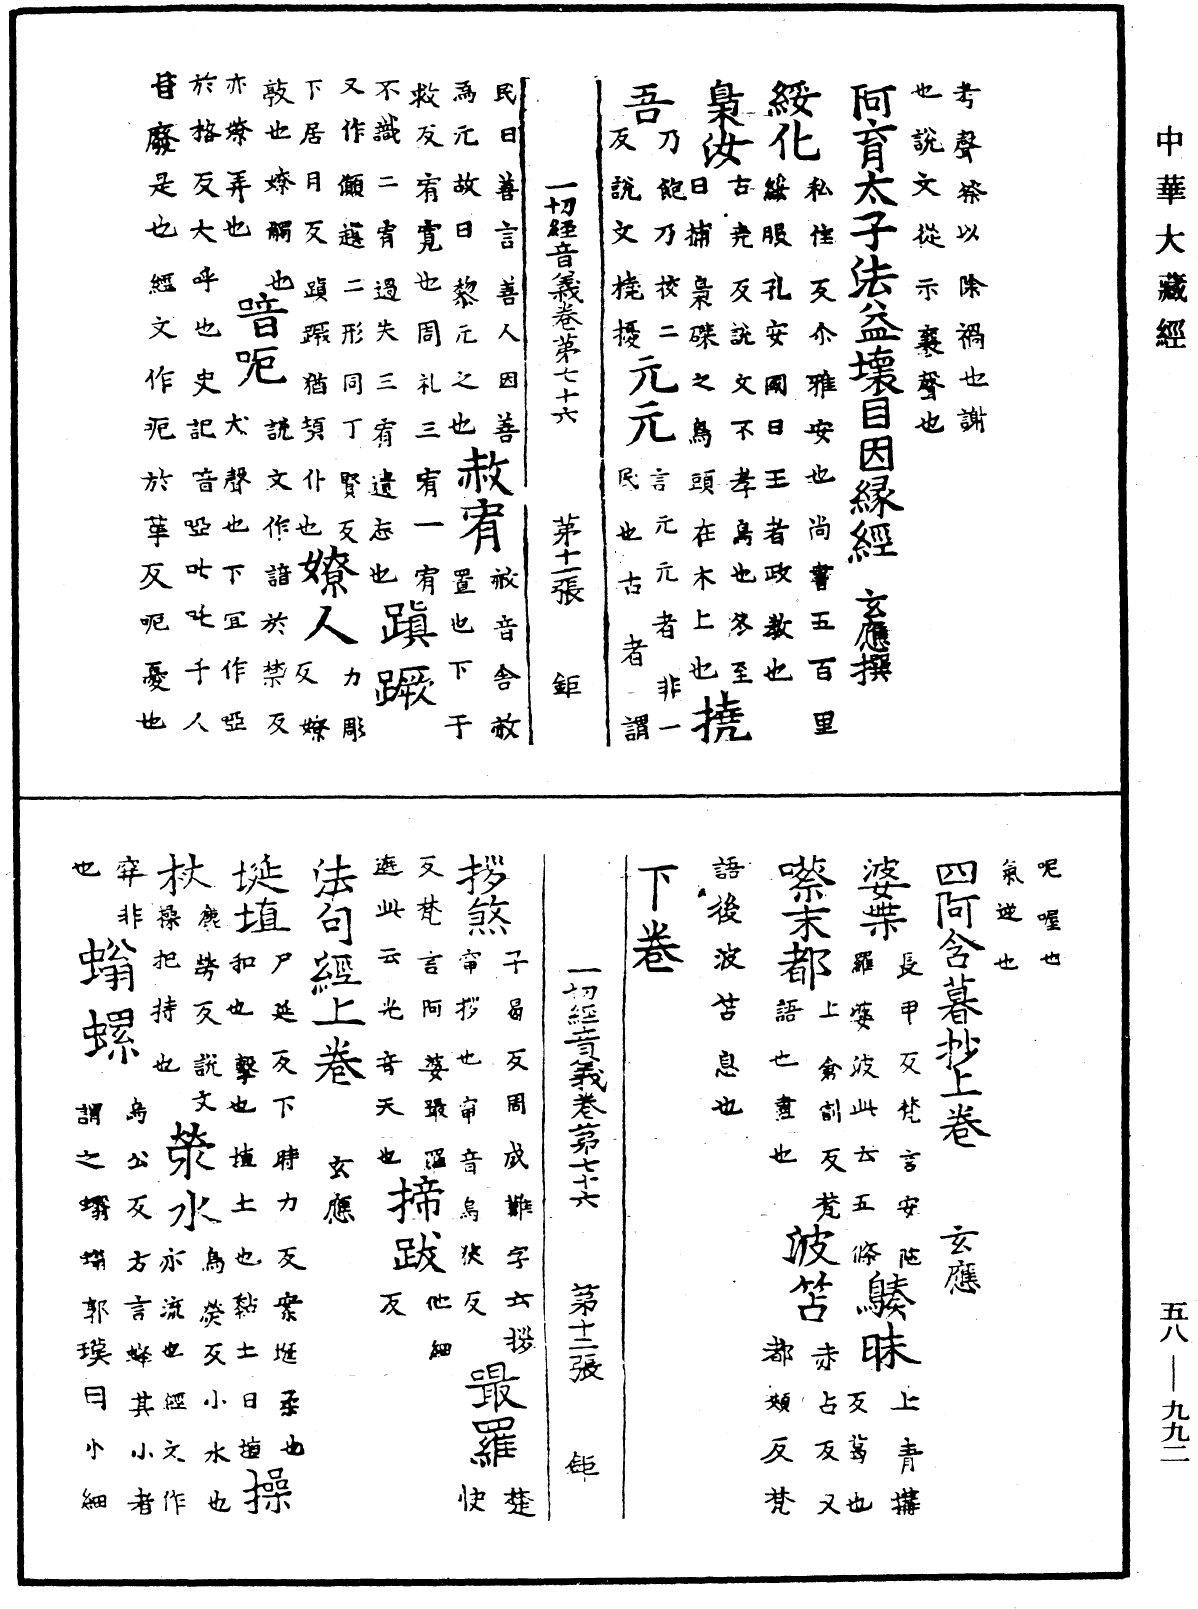 中華大藏經
考聲祭以除禍也謝
也說文從示襄聲也
阿育太子法益壞目因緣經 玄應撰
綏化 私住反介雅安也尚書五百里
綏服孔安國曰王者政教也
梟汝 古堯反說文不孝鳥也冬至
日捕梟磔之鳥頭在木上也 撓
吾 乃飽乃挍二
反說文撓擾 元元 言元元者非一
民也古者謂
一切經音義卷第七十六 第十一張 鉅
民曰善言善人因善
為元故曰黎元之也 赦宥 赦音舍赦
置也下于
救反宥寬也周礼三宥一宥
不識二宥過失三宥遺忘也 蹎蹶
又作傎𨄔二形同丁賢反
下居月反蹎蹶猶頓仆也 嫽人 力彫
反嫽
㪣也嫽觸也
亦嫽弄也 喑呃 說文作諳於禁反
犬聲也下宜作啞
於格反大呼也史記音啞叱吒千人
皆廢是也經文作呃於革反呃憂也
呃喔也
氣逆也
四阿含暮抄上卷 玄應
婆𠾱 長甲反梵言安陁
羅婆波此云五條 鰊昧 上青搆
反葛也
㘕末都 上倉割反梵
語也畫也 波笘 赤占反又
都頰反梵
語後波笘息也
下卷
一切經音義卷第七十六 第十二張 鉅
拶煞 子曷反周成難字云拶
窜拶也窜音烏狹反 最羅 楚
快
反梵言阿婆最羅
遮此云光音天也 揥跋 他細
反
法句經上卷 玄應
埏埴 尸延反下時力反案埏柔也
和也擊也埴土也黏土曰埴 操
杖 麁勞反說文
操把持也 滎水 烏熒反小水也
亦流也經文作
穽非
也 蝹螺 烏公反方言蜂其小者
謂之蠮螉郭璞曰小細
五八—九九二